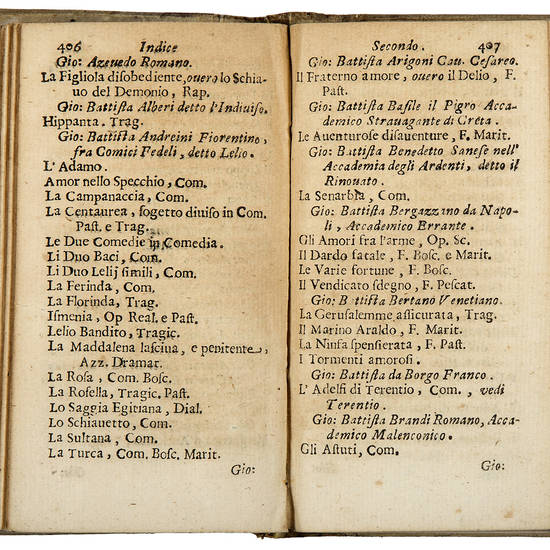 406 Indice
Gio: Azeuedo Romano.
La Figliola disobediente, ouero lo Schia-
uo del Demonio, Rap.
Gio: Battista Alberi detto l'Indiuiso.
Hippanta. Trag.
Gio: Battista Andreini Fiorentino,
fra Comici Fedeli, detto Lelio.
L'Adamo.
Amor nello Specchio, Com.
La Campanaccia, Com.
La Centaurea, sogetto diuiso in Com.
Past. e Trag.
Le Due Comedie in Comedia.
Li Duo Baci, Com.
Li Duo Lelij simili, Com.
La Ferinda, Com.
La Florinda, Trag.
Ismenia, Op Real. e Past.
Lelio Bandito, Tragic.
La Maddalena lasciua, e penitente,
Azz. Dramat.
La Rosa, Com. Bosc.
La Rosella, Tragic. Past.
Lo Saggia Egitiana, Dial.
Lo Schiauetto, Com.
La Sultana, Com.
La Turca, Com. Bosc. Marit.
Gio:
Secondo. 407
Gio: Battista Arigoni Cau. Cesareo.
Il Fraterno amore, ouero il Delio, F.
Past.
Gio: Battista Basile il Pigro Acca-
demico Strauagante di Creta.
Le Auenturose disauenture, F. Marit.
Gio: Battista Benedetto Sanese nell'
Academia degli Ardenti, detto il
Rinouato.
La Senarbia, Com.
Gio: Battista Bergazzino da Napo-
li, Accademico Errante.
Gli Amori fra l'arme, Op. Sc.
Il Dardo fatale, F. Bosc. e Marit.
Le Varie fortune, F. Bosc.
Il Vendicato sdegno, F. Pescat.
Gio: Battista Bertano Venetiano.
La Gerusalemme assicurata, Trag.
Il Marino Araldo, F. Marit.
La Ninfa spensierata, F. Past.
I Tormenti amorosi.
Gio: Battista da Borgo Franco.
L'Adelfi di Terentio, Com., vedi
Terentio.
Gio: Battista Brandi Romano, Acca-
demico Malenconico.
Gli Astuti, Com.
Gio: